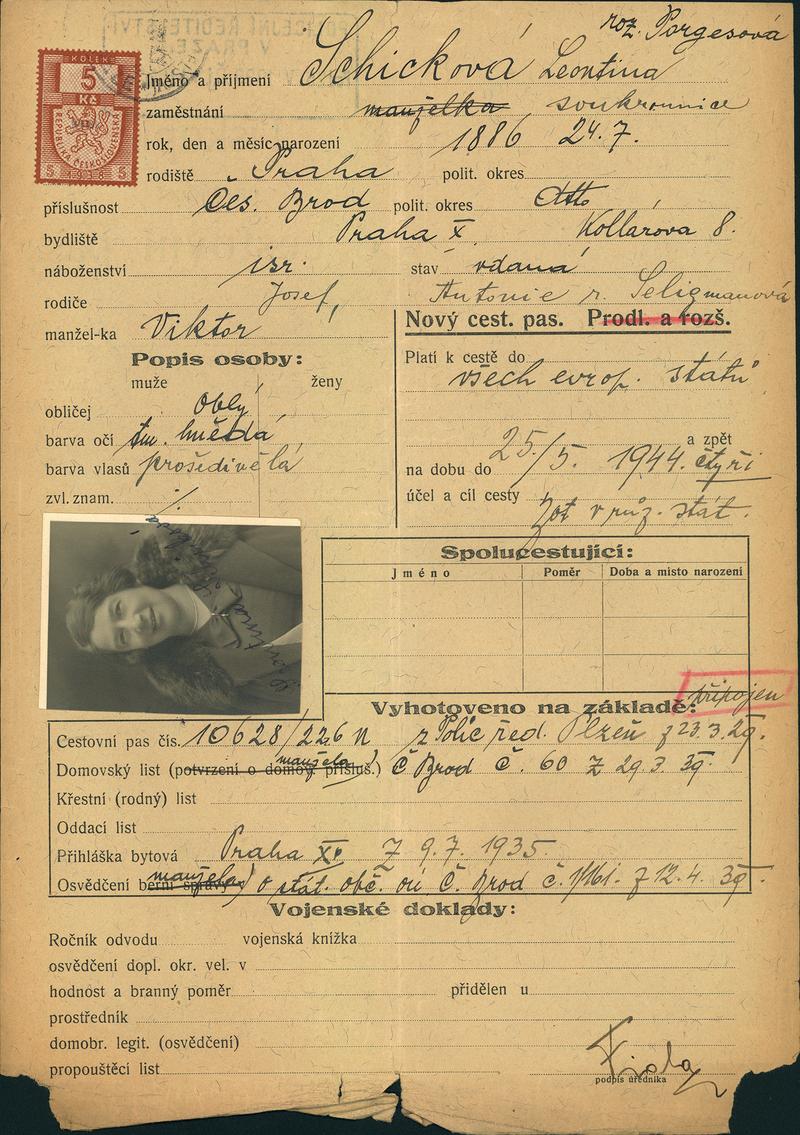 roz. Porgesová
KOLEK
5
Kč
REPUBLIKA ČESKOSLOVENSKÁ
5 1938 5
Jméno a příjmení Schicková Leontina
zaměstnání manželka soukromnice
rok, den a měsíc narození 1886 24.7.
rodiště Praha polit. okres
příslušnost Čes. Brod polit. okres dtto
bydliště Praha X, Kollárova 8.
náboženství isr. stav vdaná
rodiče Josef, Antonie r. Seligmanová
manžel-ka Viktor
Nový cest. pas. Prodl. a rozš.
Popis osoby:
muže ženy
obličej oblý
barva očí tm. hnědá
barva vlasů prošedivělá
zvl. znam. /.
Platí k cestě do
všech evrop. států
a zpět
na dobu do 25./5. 1944. čtyři
účel a cíl cesty
Zot v růz. stát.
Spolucestující:
Jméno Poměr Doba a místo narození
připojen
Vyhotoveno na základě:
Cestovní pas čís. 10628/226 n z Polic. řed. Plzeň z 23.3.29.
Domovský list (potvrzení o domov. přísluš.) manžela) Č Brod č. 60 z 29.3.39.
Křestní (rodný) list
Oddací list
Přihláška bytová Praha XI. z 9.7.1935
Osvědčení berní správy manžela) o stát. obč. Č. Brod č. z 12.4.39.
Vojenské doklady:
Ročník odvodu vojenská knížka
osvědčení dopl. okr. vel. v
hodnost a branný poměr přidělen u
prostředník
domobr. legit. (osvědčení)
propouštěcí list
podpis úředníka